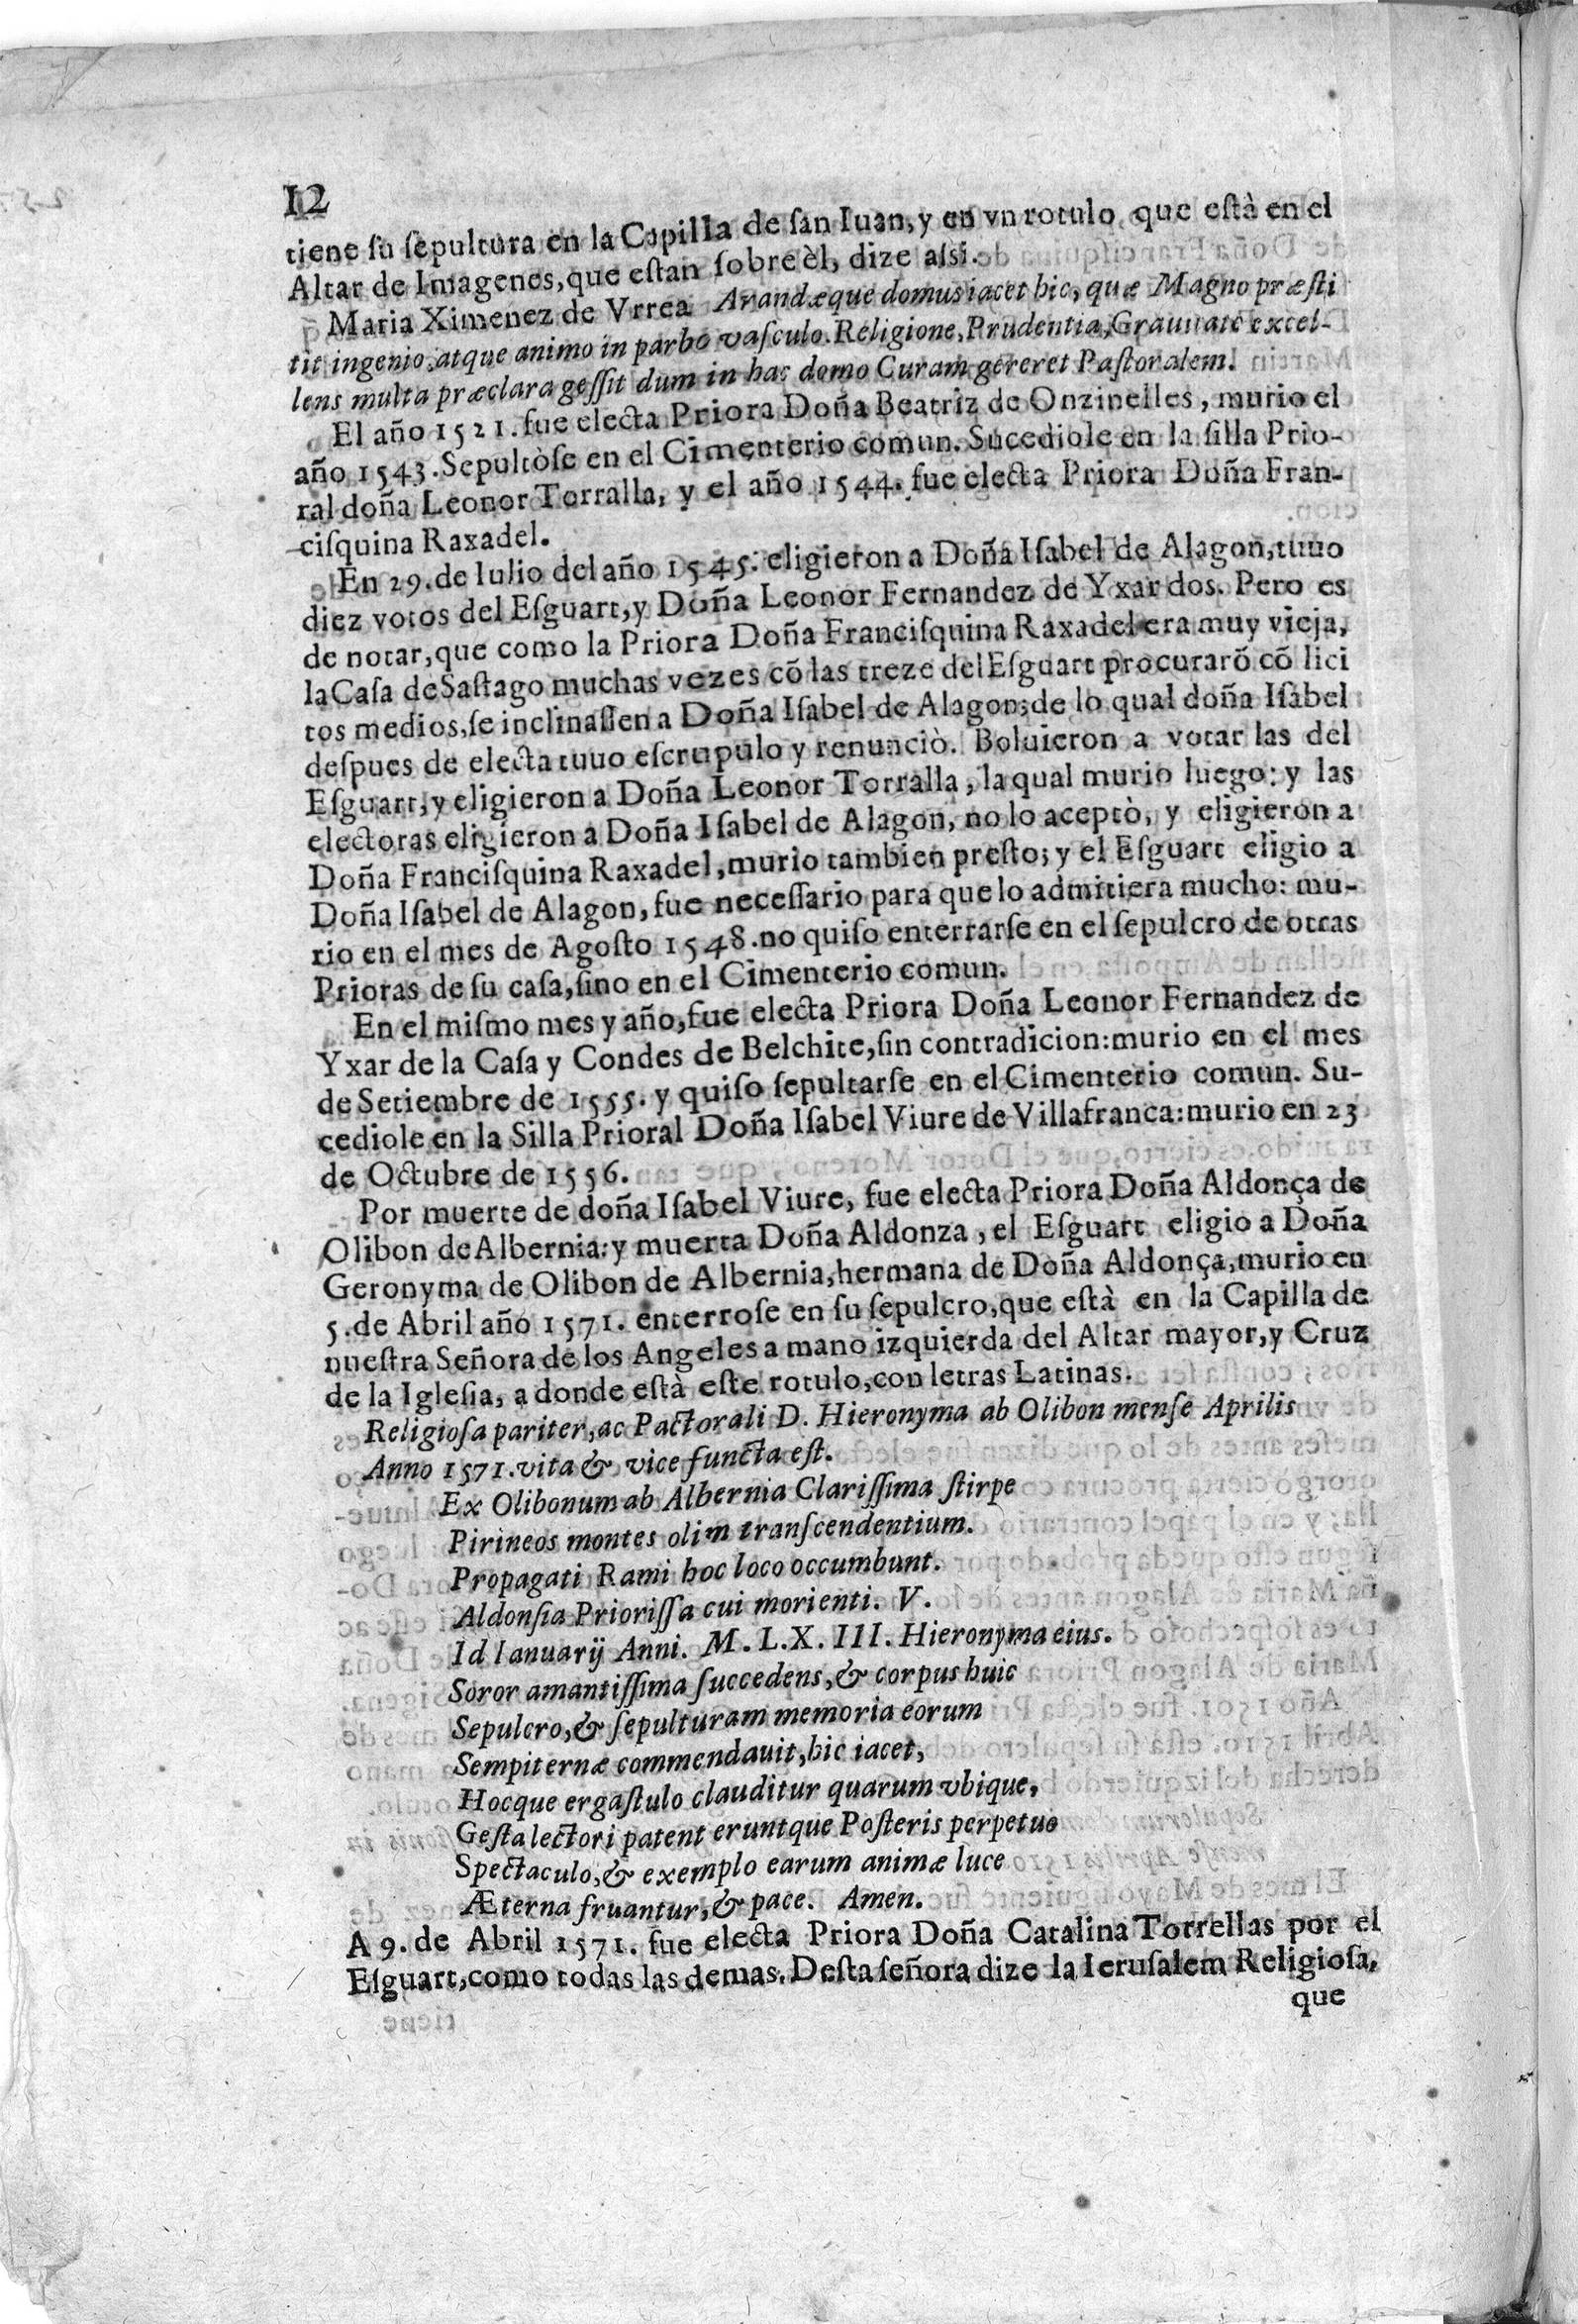 12
tiene ſu ſepultura en la Capilla de ſan Iuan, y en vn rotulo que eſtà en el
Altar de Imagenes, que eſtan ſobre èl, dize aſsi.
Maria Ximenez de Vrrea Arandæque domus iacet hic, quæ Magno præſti
tit ingenio, atque animo in parbo vaſculo. Religione, Prudentia, Grauitate excel-
lens multa præclara geſſit dum in hac domo Curam gereret Paſtoralem.
El año 1521. fue electa Priora Doña Beatriz de Onzinelles, murio el
año 1543. Sepultòſe en el Cimenterio comun. Sucediole en la ſilla Prio-
ral doña Leonor Torralla, y el año 1544. fue electa Priora Doña Fran-
ciſquina Raxadel.
En 29. de Iulio del año 1545. eligieron a Doña Iſabel de Alagon, tuuo
diez votos del Eſguart, y Doña Leonor Fernandez de Yxar dos. Pero es
de notar, que como la Priora Doña Franciſquina Raxadel era muy vieja,
la Caſa de Saſtago muchas vezes cõ las treze del Eſguart procurarõ cõ lici
tos medios, ſe inclinaſſen a Doña Iſabel de Alagon; de lo qual doña Iſabel
deſpues de electa tuuo eſcrupulo y renunciò. Boluieron a votar las del
Eſguart, y eligieron a Doña Leonor Torralla, la qual murio luego: y las
electoras eligieron a Doña Iſabel de Alagon, no lo aceptò, y eligieron a
Doña Franciſquina Raxadel, murio tambien preſto; y el Eſguart eligio a
Doña Iſabel de Alagon, fue neceſſario para que lo admitiera mucho: mu-
rio en el mes de Agoſto 1548. no quiſo enterrarſe en el ſepulcro de otras
Prioras de ſu caſa, ſino en el Cimenterio comun.
En el miſmo mes y año, fue electa Priora Doña Leonor Fernandez de
Yxar de la Caſa y Condes de Belchite, ſin contradicion: murio en el mes
de Setiembre de 1555. y quiſo ſepultarſe en el Cimenterio comun. Su-
cediole en la Silla Prioral Doña Iſabel Viure de Villafranca: murio en 23
de Octubre de 1556.
Por muerte de doña Iſabel Viure, fue electa Priora Doña Aldonça de
Olibon de Albernia: y muerta Doña Aldonza, el Eſguart eligio a Doña
Geronyma de Olibon de Albernia, hermana de Doña Aldonça, murio en
5. de Abril año 1571. enterroſe en ſu ſepulcro, que eſtà en la Capilla de
nueſtra Señora de los Angeles a mano izquierda del Altar mayor, y Cruz
de la Igleſia, a donde eſtà eſte rotulo, con letras Latinas.
Religioſa pariter, ac Pactorali D. Hieronyma ab Olibon menſe Aprilis
Anno 1571. vita & vice functa eſt.
Ex Olibonum ab Albernia Clariſſima ſtirpe
Pirineos montes olim tranſcendentium.
Propagati Rami hoc loco occumbunt.
Aldonſia Prioriſſa cui morienti. V.
Id Ianuarij Anni. M. L. X. III. Hieronyma eius.
Soror amantiſſima ſuccedens, & corpus huic
Sepulcro, & ſepulturam memoria eorum
Sempiternæ commendauit, hic iacet,
Hocque ergaſtulo clauditur quarum vbique,
Geſta lectori patent eruntque Poſteris perpetuo
Spectaculo, & exemplo earum animæ luce
Æterna fruantur, & pace. Amen.
A 9. de Abril 1571. fue electa Priora Doña Catalina Torrellas por el
Eſguart, como todas las demas. Deſta ſeñora dize la Ieruſalem Religioſa,
que